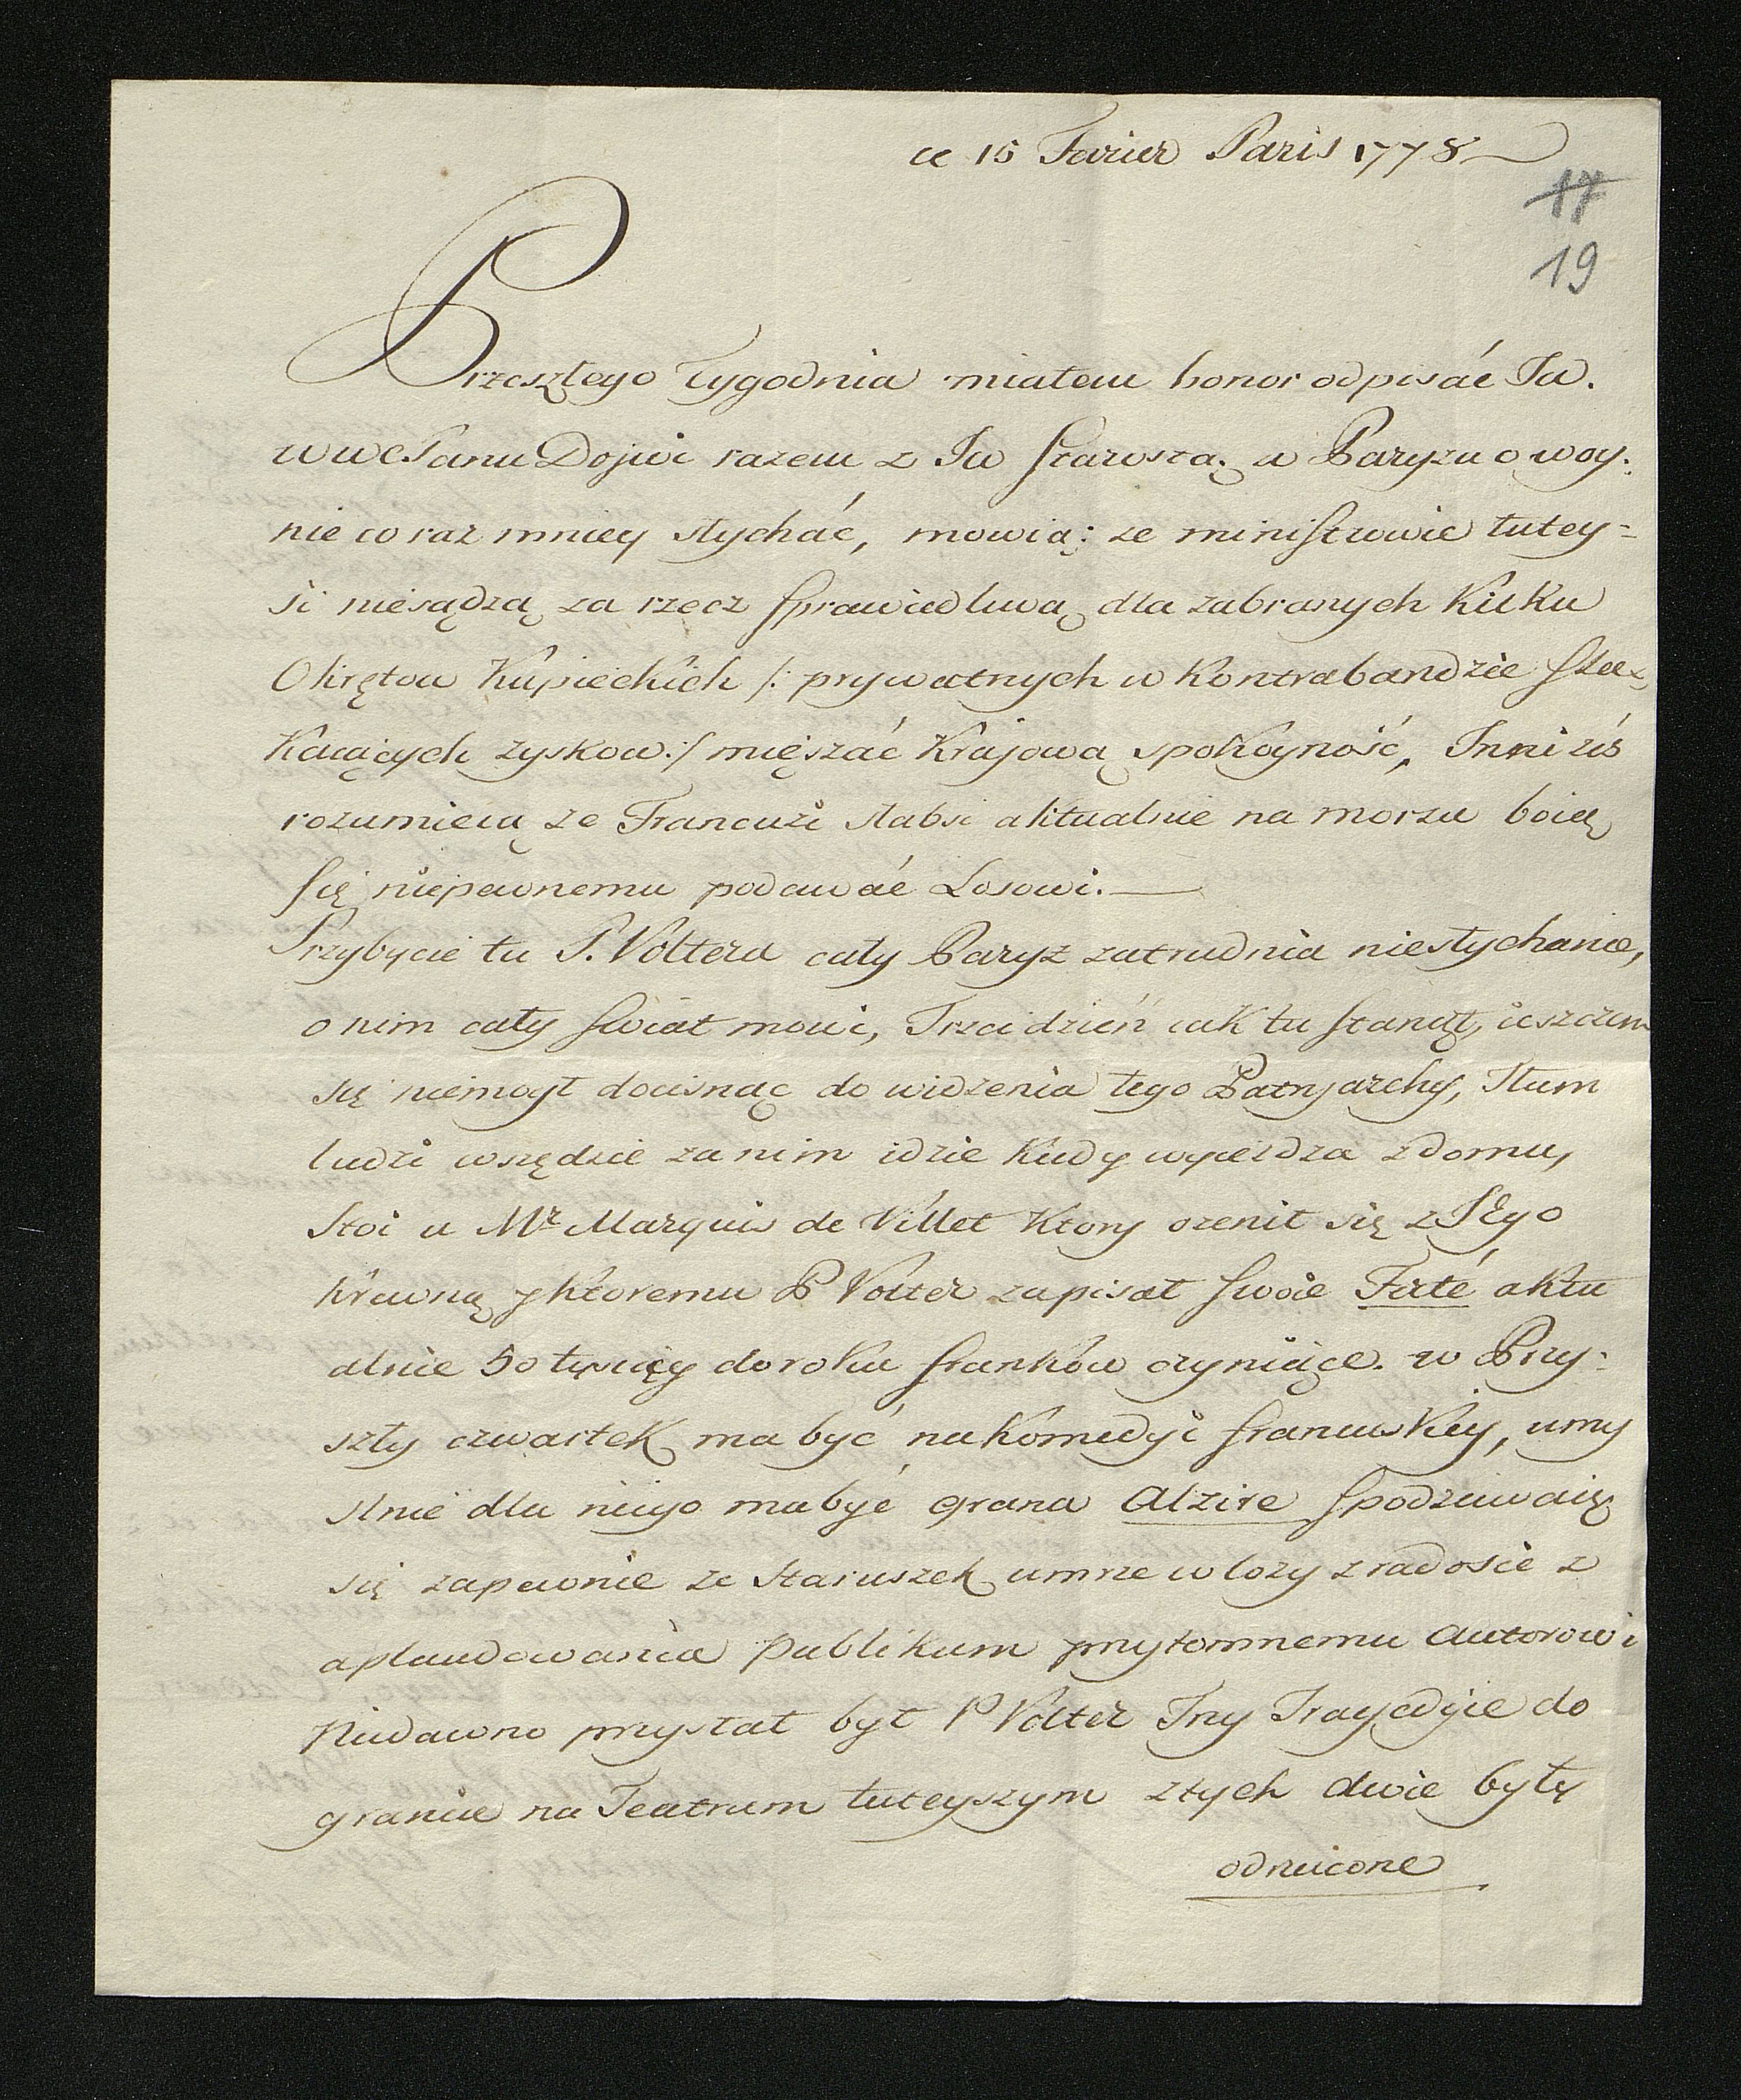 ce 15 Fevrier Paris 1778
17
19
Przeszłego Tygodnia miałem honor odpisać Jw.
wwc Panu Dojwi razem z Jw Starostą, w Paryzu o woy:
nie co raz mniey słychać, mowią: ze ministrowie tutey=
si niesądzą za rzecz sprawiedliwą dla zabranych Kilku
Okrętow Kupieckich /: prywatnych w Kontrabandzie szu=
Kaiących zyskow :/ mięszać Krajową spoKoyność, Inni zaś
rozumieią ze Francuzi słabsi aktualnie na morzu boią
się niepewnemu podawać Losowi.—
Przybycie tu P. Voltera cały Paryz zatrudnia niesłychanie,
o nim cały swiat mowi, Trzci dzień iak tu stanął, ieszczem
się niemogł docisnąc do widzenia tego Patryarchy, Tłum
ludzi wszędzie za nim idzie Kudy wyiezdza z domu,
Stoi u Mr Marquis de Villet Ktory ozenił się z Jego
Krewną, y Ktoremu P Volter zapisał swoie Ferté aktu
alnie 50 tysięcy do roku frankow czyniące. w Przy:
szły czwartek ma być na Komedyi francusKiey, umy
slnie dla niego ma być grana Alzire spodziewaią
się zapewnie ze staruszek umrze w lozy z radosci z
aplaudowania Publikum przytomnemu Autorowi
Niedawno przysłał był P Volter Trzy Tragedyie do
grania na Teatrum tuteyszym z tych dwie były
odrzucone